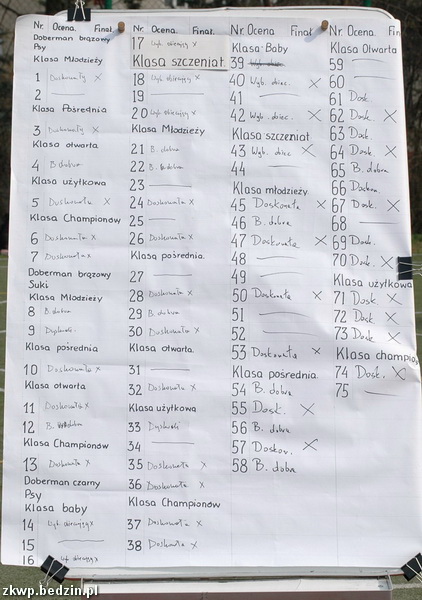 Nr. Ocena. Finał.
Doberman brązowy
Psy
Klasa Młodzieży
1 Doskonały X
2 —
Klasa Pośrednia
3 Doskonały X
Klasa otwarta
4 B. dobra
Klasa użytkowa
5 Doskonała X
Klasa Championów
6 Doskonała X
7 Doskonała X
Doberman brązowy
Suki
Klasa Młodzieży
8 B. dobra
9
Klasa pośrednia
10 Doskonała X
Klasa otwarta
11 Doskonała X
12 B. dobra
Klasa Championów
13 Doskonała X
Doberman czarny
Psy
Klasa baby
14 X
15 —
16 X
Nr. Ocena. Finał.
17 X
Klasa szczeniąt.
18 X
19 —
20 X
Klasa Młodzieży
21 B. dobra
22 B. dobra
23 —
24 Doskonała X
25 —
26 Doskonała X
Klasa pośrednia.
27 —
28 Doskonała X
29 B. dobra
30 Doskonała X
Klasa otwarta
31 —
32 Doskonała X
Klasa użytkowa
33
34 —
35 Doskonała X
36 Doskonała X
Klasa Championów
37 Doskonała X
38 Doskonała X
Nr Ocena. Finał.
Klasa Baby
39
40 Wyb. obiec. X
41 —
42 Wyb. obiec. X
Klasa szczeniąt
43 Wyb. obiec. X
44 —
Klasa młodzieży
45 Doskonała X
46 B. dobra
47 Doskonała X
48 —
49 —
50 Doskonała X
51 —
52 —
53 Doskonała X
Klasa pośrednia
54 B. dobra
55 Dosk. X
56 B. dobra
57 Doskon. X
58 B. dobra
Nr. Ocena. Finał.
Klasa Otwarta
59 —
60 —
61 Dosk.
62 Dosk. X
63 Dosk.
64 Dosk X
65 B. dobra
66 Doskon.
67 Dosk. X
68 —
69 Dosk.
70 Dosk. X
Klasa użytkowa
71 Dosk X
72 Dosk X
73 Dosk X
Klasa champio
74 Dosk. X
75 —
zkwp.bedzin.pl